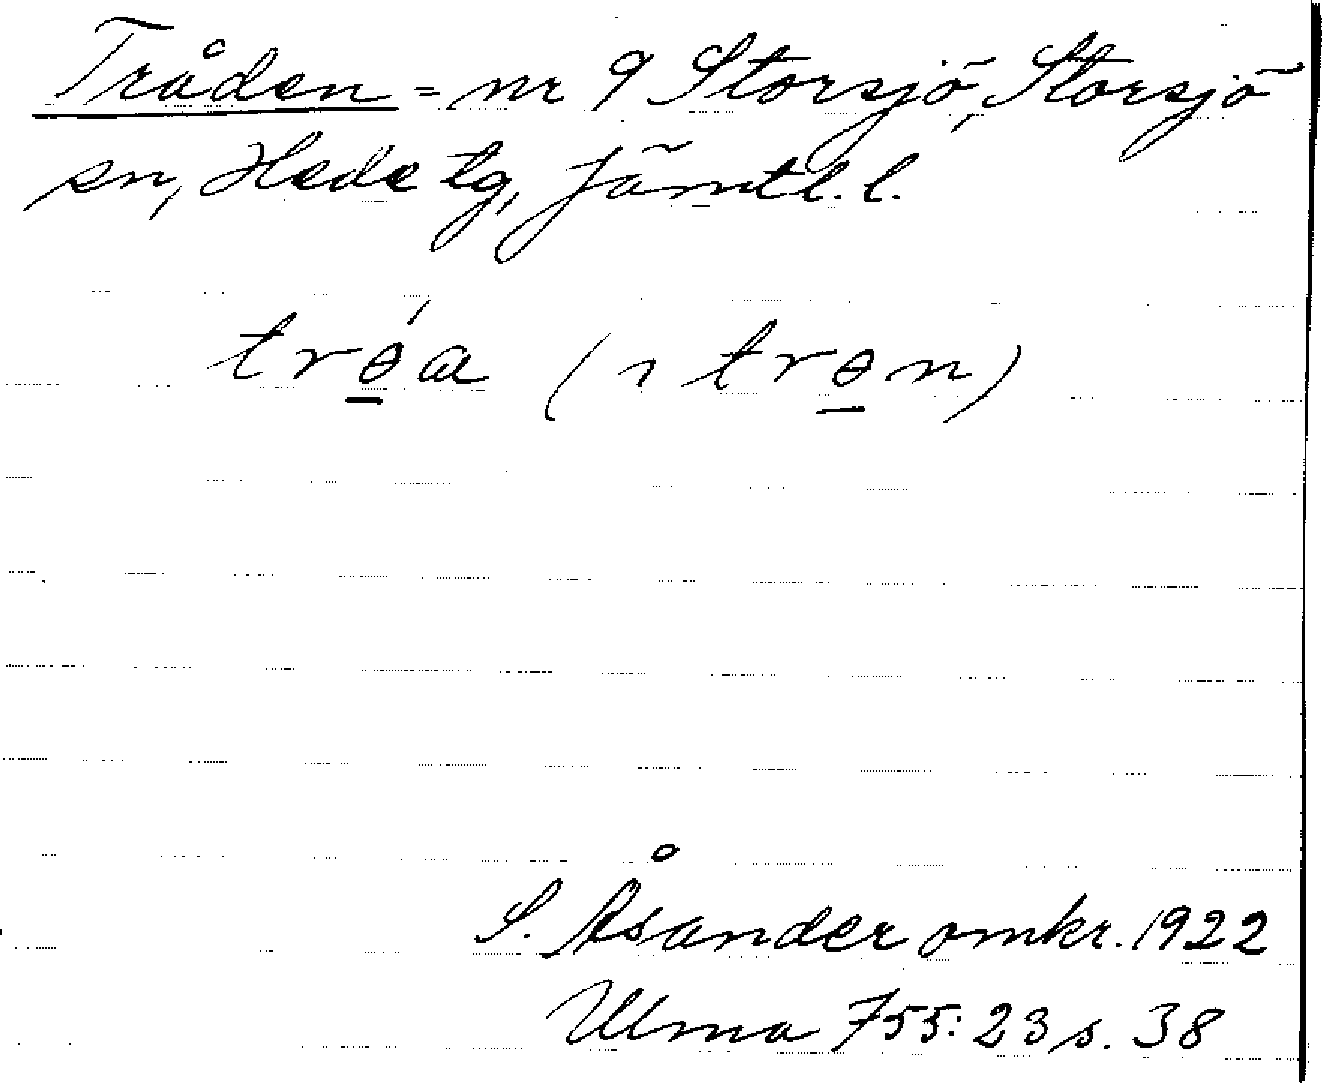 Tråden = nr 9 Storsjö, Storsjö
sn, Hede tg, Jämtl. l.
trɵ̠́a (ı trɵ̠n)
S. Åsander omkr. 1922
Ulma 755:23 s. 38